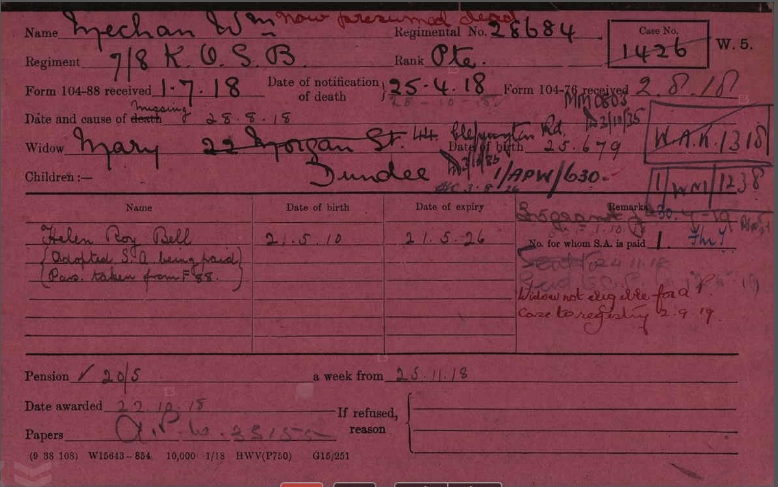 now presumed dead
Name Mechan Wm Regimental No. 28684 Case No. 1426 W. 5.
Regiment 7/8 K.O.S.B. Rank Pte.
Form 104-88 received 1.7.18 Date of notification of death } 25.4.18 Form 104-76 received 2.8.18
28-10-18
missing
Date and cause of death 28.8.18
Widow Mary 22 Morgan St. 44 Rd. Date of birth 25.6.79 W.A.K. 1318
Children :— Dundee 1/APW/630 1/WM/1238
Name Date of birth Date of expiry Remarks
Helen Roy Bell 21.5.10 21.5.26 No. for whom S.A. is paid 1.
(Adopted S.A. being paid)
(Pass. taken from F 88.
Widow not eligible for a
Case to registry 2.9.19.
Pension 20/5 a week from 25.11.18
Date awarded 22.10.18 If refused, reason
Papers
(9 38 103) W15643—854. 10,000 1/18 HWV(P750) G15/251